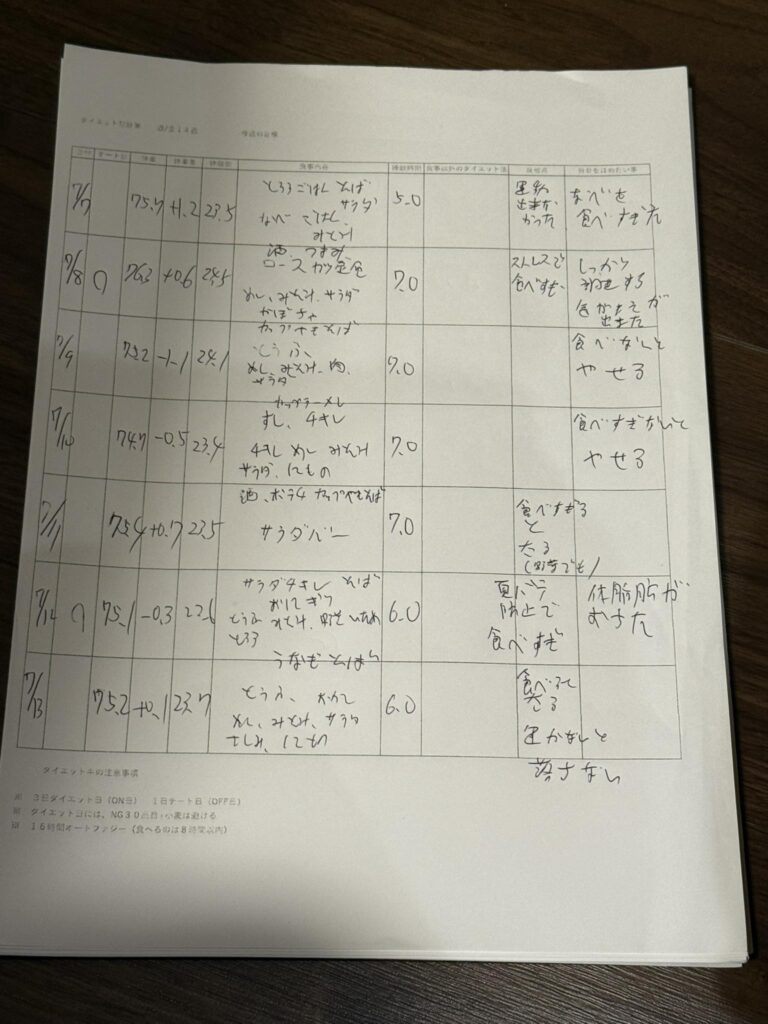 日付 チート日 体重 体重差 体脂肪 食事内容 睡眠時間 食事以外のダイエット法 反省点 自分をほめたい事
7/7 75.7 +1.2 23.5 とろろごはん そば 5.0 運動 なべを
サラダ 出来な 食べすぎた
なべ ごはん、 かった
みそ汁
酒、つまみ
7/8 76.3 +0.6 24.5 ロースカツ定食 7.0 ストレスで しっかり
めし、みそ汁、サラダ 食べすぎ
かぼちゃ 出来た
カップやきそば
7/9 75.2 -1.1 24.1 とうふ、 7.0 食べないと
めし、みそ汁、肉、 やせる
サラダ
カップラーメン
7/10 74.7 -0.5 23.4 すし、チキン 7.0 食べすぎないと
チキン めし みそ汁 やせる
サラダ、にもの
7/11 75.4 +0.7 23.5 酒、ポテチ カップやきそば 7.0 食べすぎる
サラダバー と
太る
7/14 75.1 -0.3 サラダチキン そば 6.0 夏バテ 体脂肪が
おにぎり 防止で
とうふ みそ汁 食べすぎ
とろろ
うなぎ
7/13 75.2 +0.1 23.7 とうふ、 6.0 食べると
めし、みそ汁、サラダ 太る
さしみ、にもの
落さない
ダイエット中の注意事項
3日ダイエット日(ON日) 1日チート日(OFF日)
ダイエット日には、NG30品目・小麦は避ける
16時間オートファジー(食べるのは8時間以内)